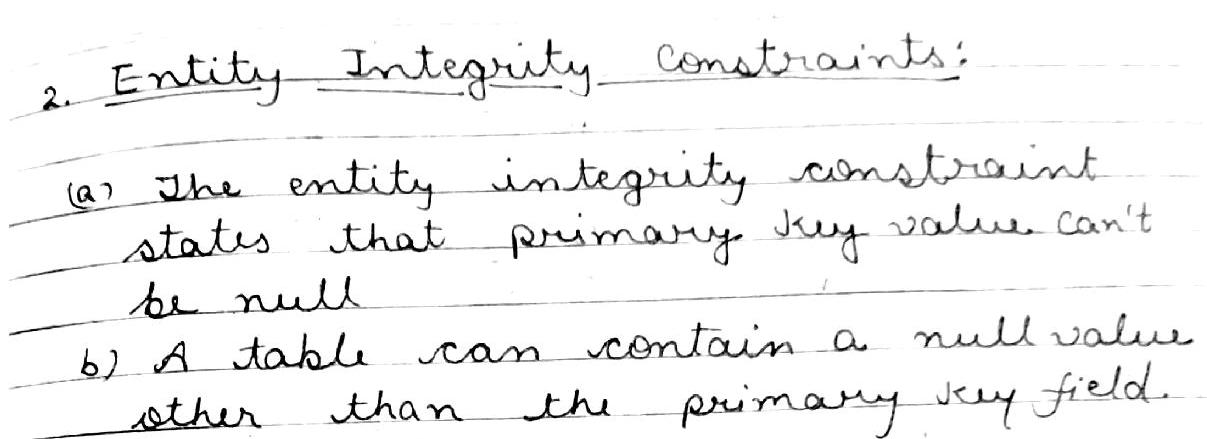 2. Entity Integrity Constraints:
(a) The entity integrity constraint
states that primary key value can't
be null
b) A table can contain a null value
other than the primary key field.